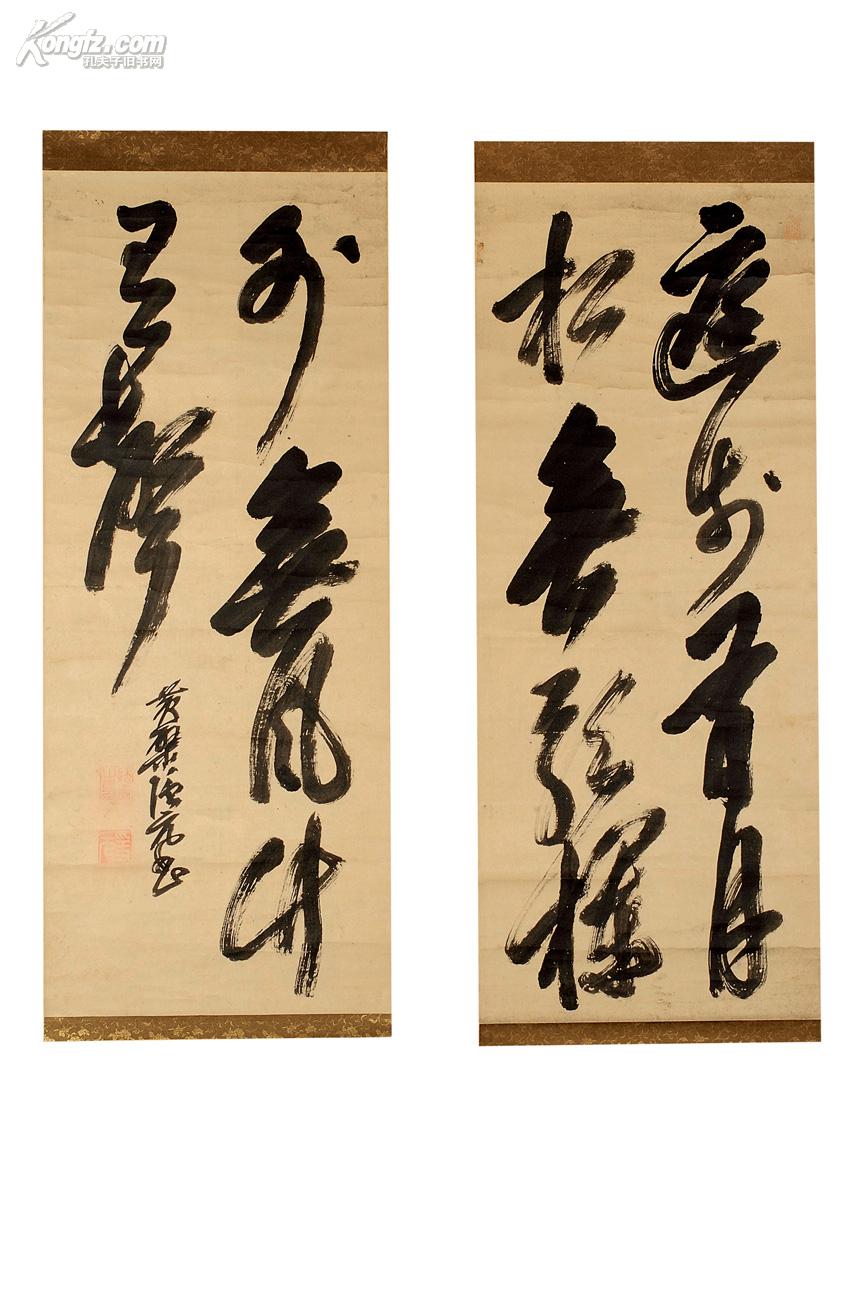 Kongfz.com
孔夫子旧书网
庭前有月
松無影欄
外無風竹
有聲
黄檗